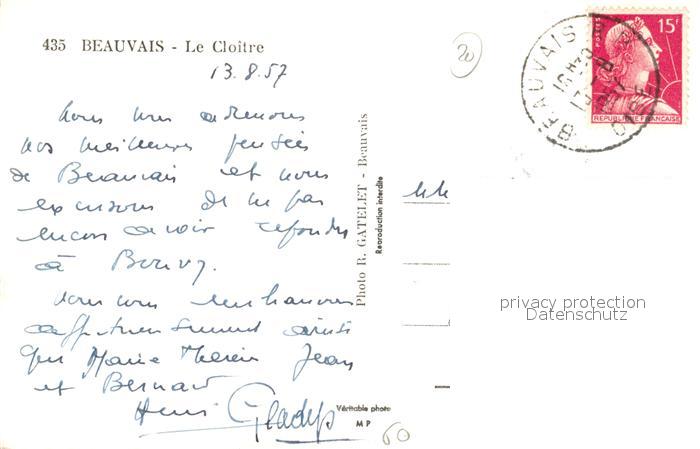 435 BEAUVAIS - Le Cloître
13.8.57
Nous vous adressons
nos meilleures pensées
de Beauvais et nous
excusons de ne pas
encore avoir répondu
à
Nous vous embrassons
affectueusement ainsi
que Marie Thérèse Jean
et Bernard
Henri Gladys
Photo R. GATELET - Beauvais
Reproduction interdite
Véritable photo
M P
20
60
POSTES
15F
REPUBLIQUE FRANCAISE
BEAUVAIS
OISE
privacy protection
Datenschutz